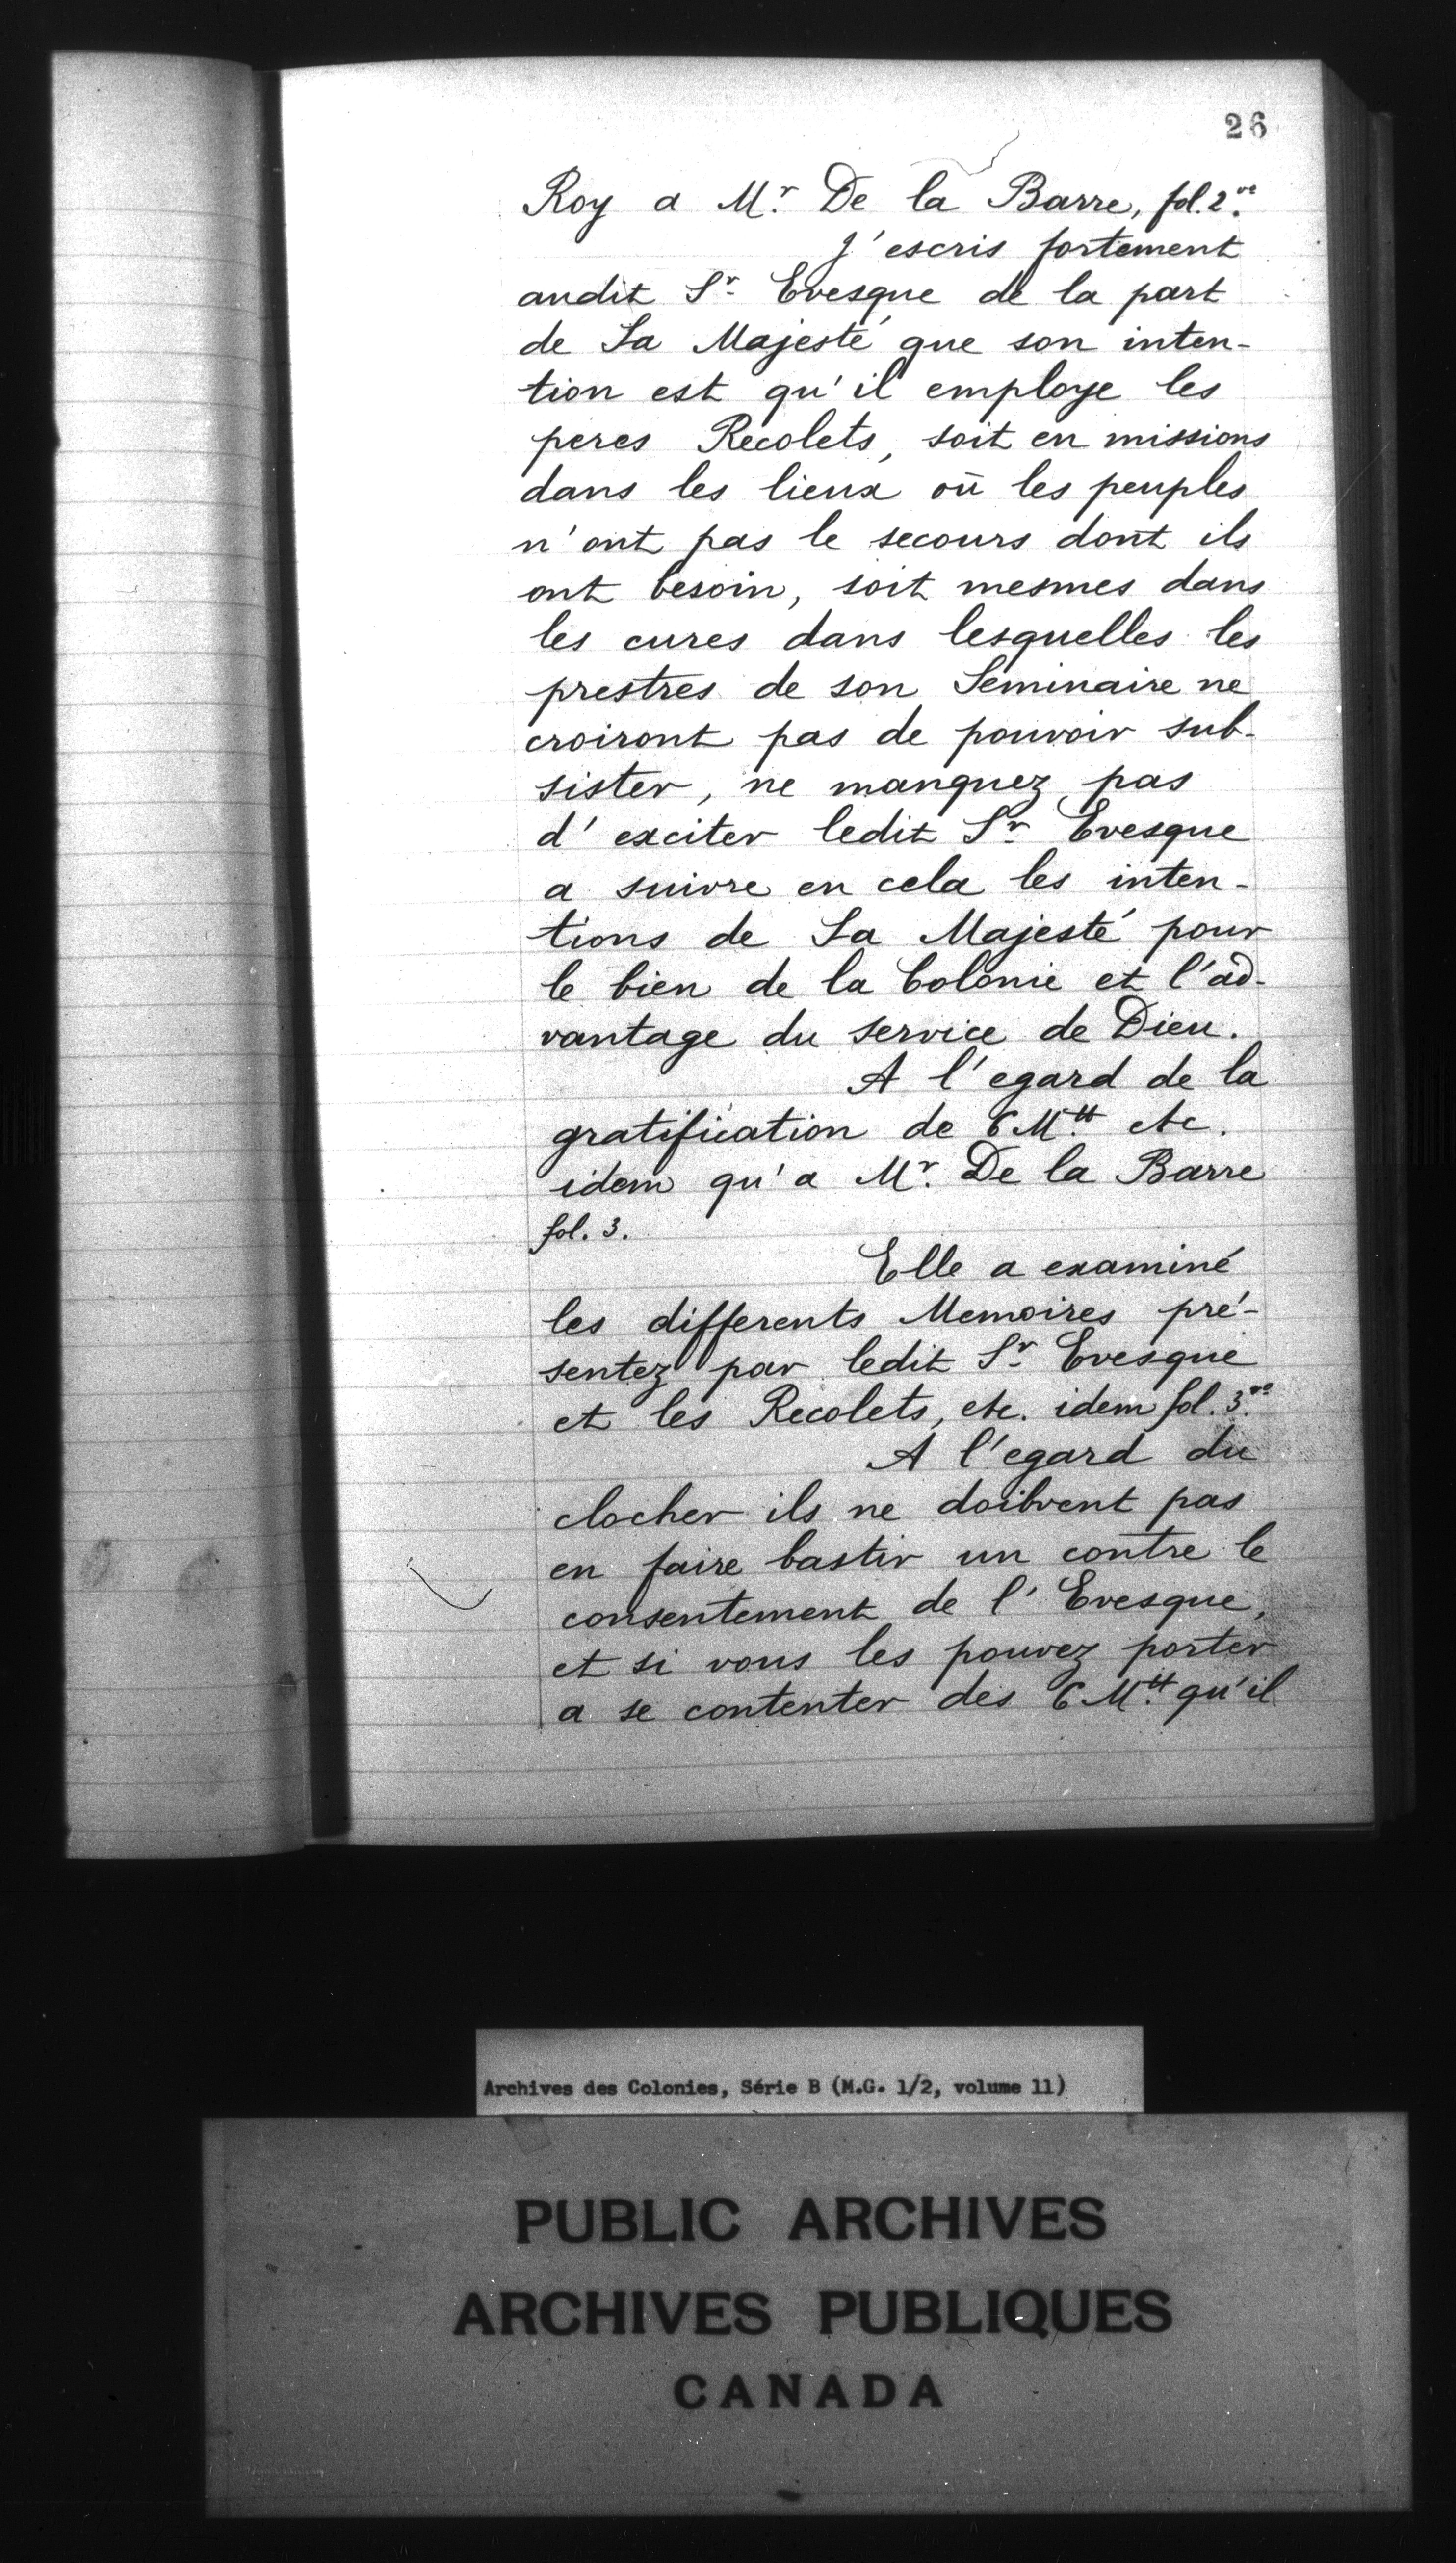 26
Roy a Mr. De la Barre, fol. 2vo.
J'escris fortement
audit Sr. Evesque de la part
de Sa Majesté que son inten-
tion est qu'il employe les
peres Recolets, soit en missions
dans les lieux où les peuples
n'ont pas le secours dont ils
ont besoin, soit mesmes dans
les cures dans lesquelles les
prestres de son Seminaire ne
croiront pas de pouvoir sub-
sister, ne manquez pas
d'exciter ledit Sr. Evesque
a suivre en cela les inten-
tions de Sa Majesté pour
le bien de la Colonie et l'ad-
vantage du service de Dieu.
A l'egard de la
gratification de 6 Mtt. etc.
idem qu'a Mr. De la Barre
fol. 3.
Elle a examiné
les differents Memoires pré-
sentez par ledit Sr. Evesque
et les Recolets, etc. idem fol. 3vo.
A l'egard du
clocher ils ne doibvent pas
en faire bastir un contre le
consentement de l'Evesque,
et si vous les pouvez porter
a se contenter des 6 Mtt. qu'il
Archives des Colonies, Série B (M.G. 1/2, volume 11)
PUBLIC ARCHIVES
ARCHIVES PUBLIQUES
CANADA